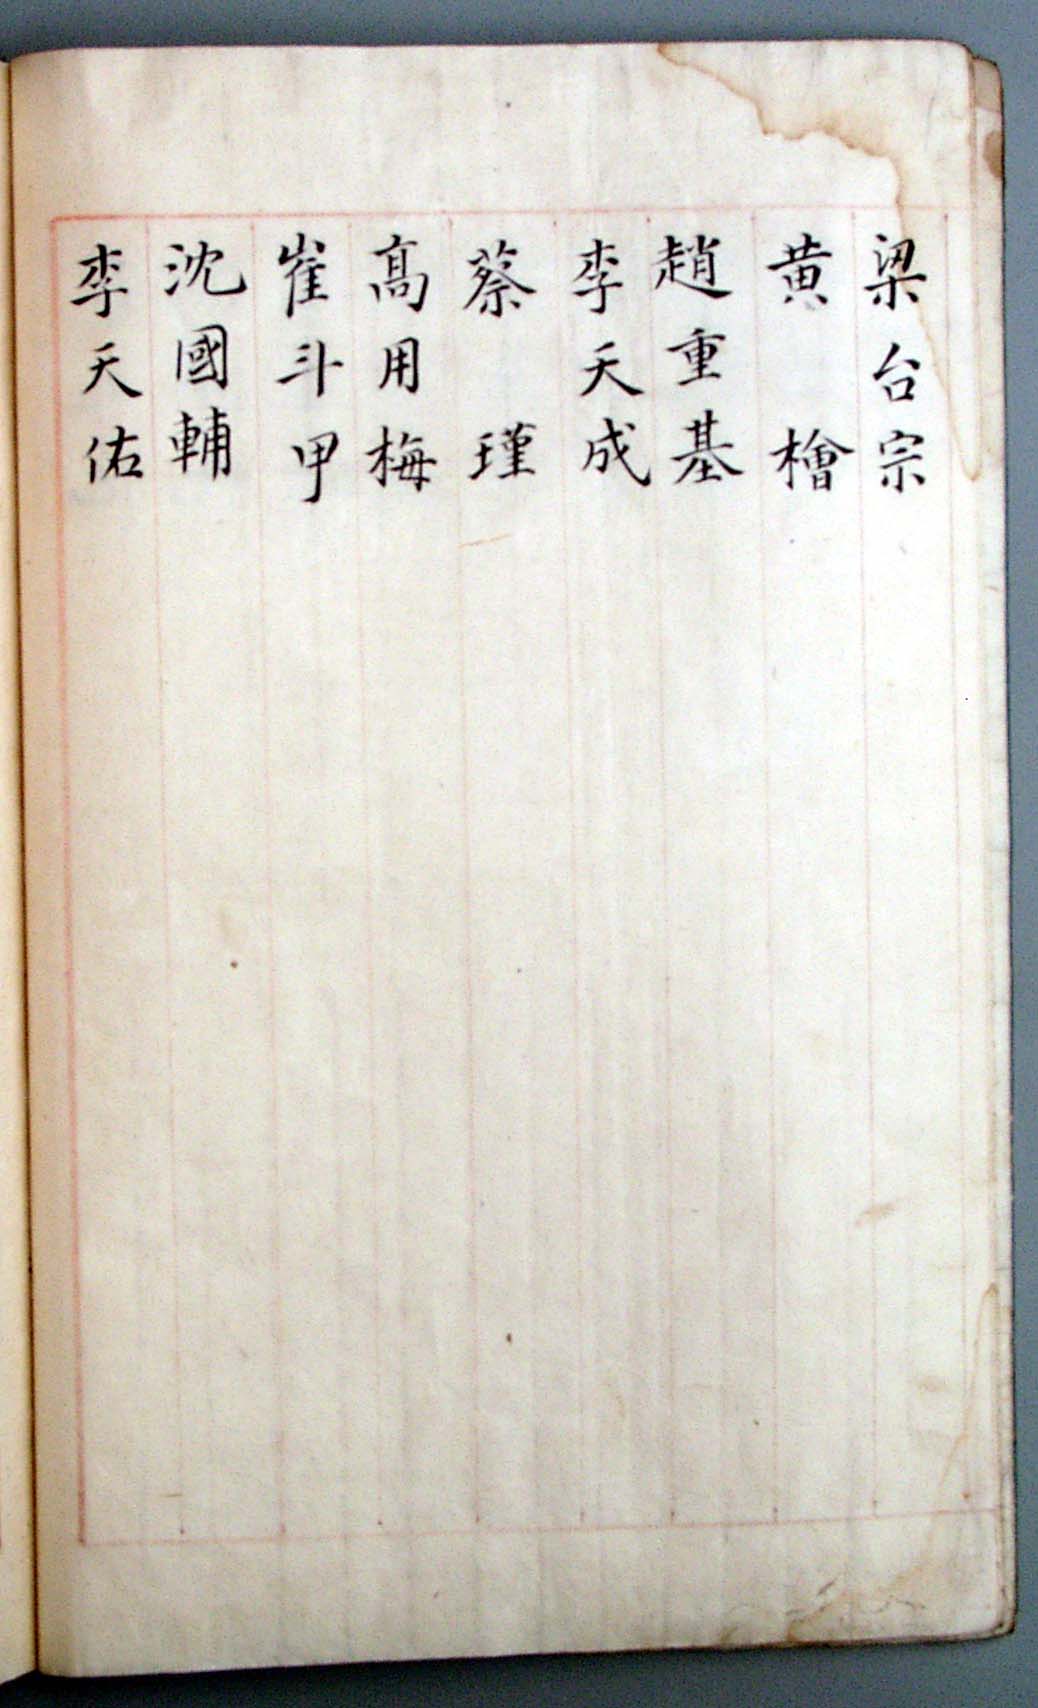 梁台宗
黄檜
趙重基
李天成
蔡瑾
高用梅
崔斗甲
沈國輔
李天佑